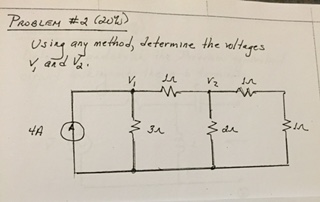 PROBLEM #2 (20%)
Using any method, determine the voltages
V₁ and V₂.
V₁ 1Ω V₂ 1Ω
4A 3Ω 2Ω 1Ω